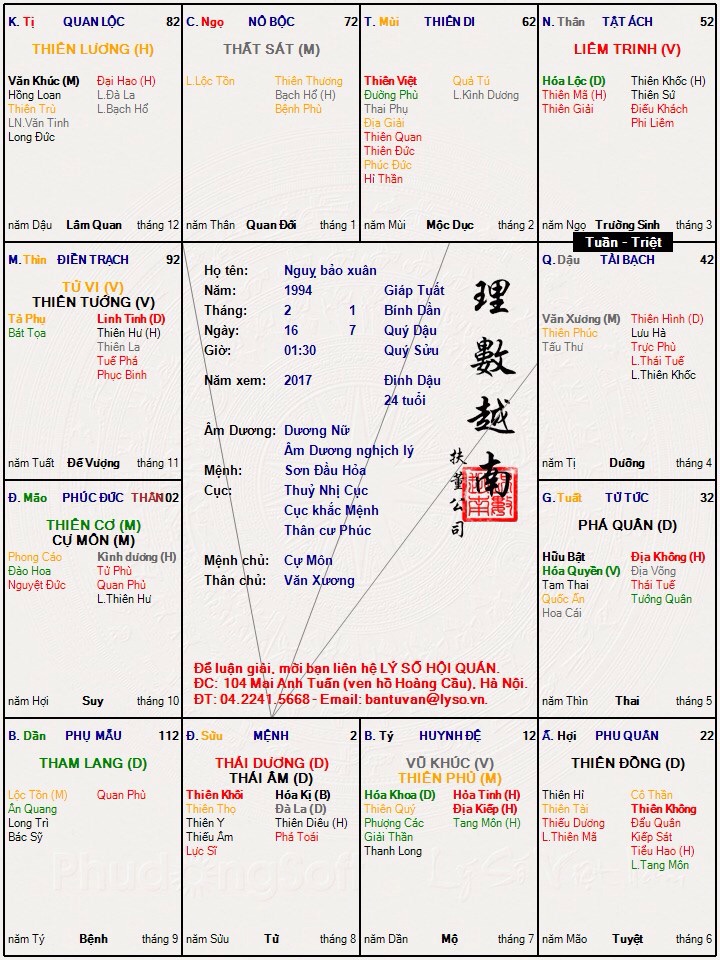 K. Tị QUAN LỘC 82
THIÊN LƯƠNG (H)
Văn Khúc (M) Đại Hao (H)
Hồng Loan L.Đà La
Thiên Trù L.Bạch Hổ
LN.Văn Tinh
Long Đức
năm Dậu Lâm Quan tháng 12
C. Ngọ NÔ BỘC 72
THẤT SÁT (M)
L.Lộc Tồn Thiên Thương
Bạch Hổ (H)
Bệnh Phù
năm Thân Quan Đới tháng 1
T. Mùi THIÊN DI 62
Thiên Việt Quả Tú
Đường Phù L.Kình Dương
Thai Phụ
Địa Giải
Thiên Quan
Thiên Đức
Phúc Đức
Hỉ Thần
năm Mùi Mộc Dục tháng 2
N. Thân TẬT ÁCH 52
LIÊM TRINH (V)
Hóa Lộc (D) Thiên Khốc (H)
Thiên Mã (H) Thiên Sứ
Thiên Giải Điếu Khách
Phi Liêm
năm Ngọ Trường Sinh tháng 3
Tuần - Triệt
M. Thìn ĐIỀN TRẠCH 92
TỬ VI (V)
THIÊN TƯỚNG (V)
Tả Phụ Linh Tinh (D)
Bát Tọa Thiên Hư (H)
Thiên La
Tuế Phá
Phục Binh
năm Tuất Đế Vượng tháng 11
Họ tên: Nguỵ bảo xuân
Năm: 1994 Giáp Tuất
Tháng: 2 1 Bính Dần
Ngày: 16 7 Quý Dậu
Giờ: 01:30 Quý Sửu
Năm xem: 2017 Đinh Dậu
24 tuổi
Âm Dương: Dương Nữ
Âm Dương nghịch lý
Mệnh: Sơn Đầu Hỏa
Cục: Thuỷ Nhị Cục
Cục khắc Mệnh
Thân cư Phúc
Mệnh chủ: Cự Môn
Thân chủ: Văn Xương
理數越南
扶董公司
Để luận giải, mời bạn liên hệ LÝ SỐ HỘI QUÁN.
ĐC: 104 Mai Anh Tuấn (ven hồ Hoàng Cầu), Hà Nội.
ĐT: 04.2241.5668 - Email: bantuvan@lyso.vn.
Q. Dậu TÀI BẠCH 42
Văn Xương (M) Thiên Hình (D)
Thiên Phúc Lưu Hà
Tấu Thư Trực Phù
L.Thái Tuế
L.Thiên Khốc
năm Tị Dưỡng tháng 4
Đ. Mão PHÚC ĐỨC THÂN 102
THIÊN CƠ (M)
CỰ MÔN (M)
Phong Cáo Kình dương (H)
Đào Hoa Tử Phù
Nguyệt Đức Quan Phủ
L.Thiên Hư
năm Hợi Suy tháng 10
G. Tuất TỬ TỨC 32
PHÁ QUÂN (D)
Hữu Bật Địa Không (H)
Hóa Quyền (V) Địa Võng
Tam Thai Thái Tuế
Quốc Ấn Tướng Quân
Hoa Cái
năm Thìn Thai tháng 5
B. Dần PHỤ MẪU 112
THAM LANG (D)
Lộc Tồn (M) Quan Phù
Ân Quang
Long Trì
Bác Sỹ
năm Tý Bệnh tháng 9
Đ. Sửu MỆNH 2
THÁI DƯƠNG (D)
THÁI ÂM (D)
Thiên Khôi Hóa Kị (B)
Thiên Thọ Đà La (D)
Thiên Y Thiên Diêu (H)
Thiếu Âm Phá Toái
Lực Sĩ
năm Sửu Tử tháng 8
B. Tý HUYNH ĐỆ 12
VŨ KHÚC (V)
THIÊN PHỦ (M)
Hóa Khoa (D) Hỏa Tinh (H)
Thiên Quý Địa Kiếp (H)
Phượng Các Tang Môn (H)
Giải Thần
Thanh Long
năm Dần Mộ tháng 7
Ấ. Hợi PHU QUÂN 22
THIÊN ĐỒNG (D)
Thiên Hỉ Cô Thần
Thiên Tài Thiên Không
Thiếu Dương Đẩu Quân
L.Thiên Mã Kiếp Sát
Tiểu Hao (H)
L.Tang Môn
năm Mão Tuyệt tháng 6